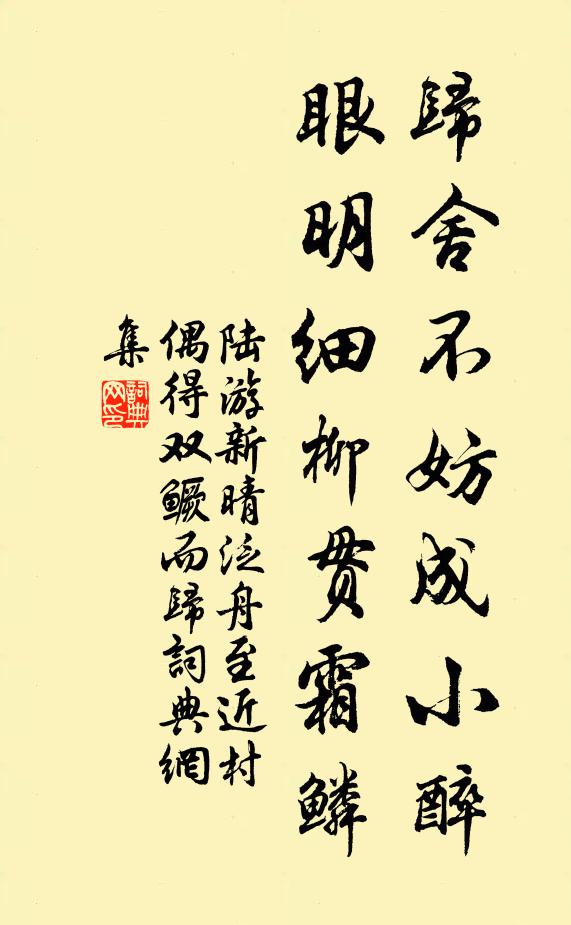 歸舍不妨成小醉
眼明細柳貫霜鱗
陆游新晴泛舟至近村
偶得双鳜而歸詞典網
集
詞典
网印